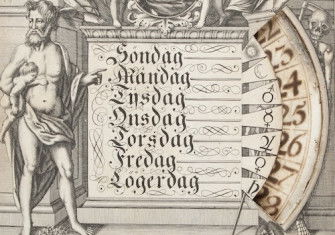 Söndag
Måndag
Tysdag
Onsdag
Torsdag
Fredag
Lögerdag
22
23
24
25